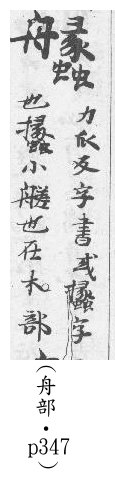 舟蠡
力反字書或欚字
也欚小艖也在木部
（舟部・p347）